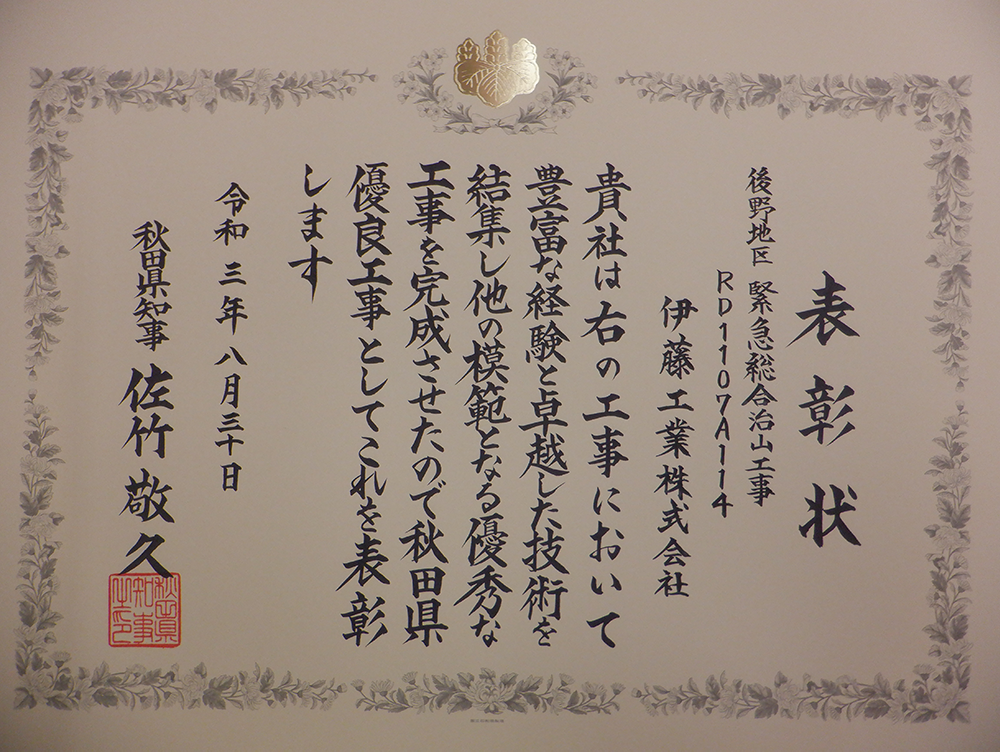 表彰状
後野地区 緊急総合治山工事
RD1107A114
伊藤工業株式会社
貴社は右の工事において
豊富な経験と卓越した技術を
結集し他の模範となる優秀な
工事を完成させたので秋田県
優良工事としてこれを表彰
します
令和三年八月三十日
秋田県知事 佐竹敬久
秋田県
知事
之印